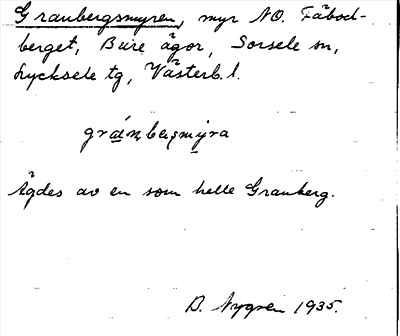 Granbergsmyren, myr NO. Fäbod-
berget, Bure ägor, Sorsele sn,
Lycksele tg, Västerb. l.
Ägdes av en som hette Granberg.
D. Nygren 1935.